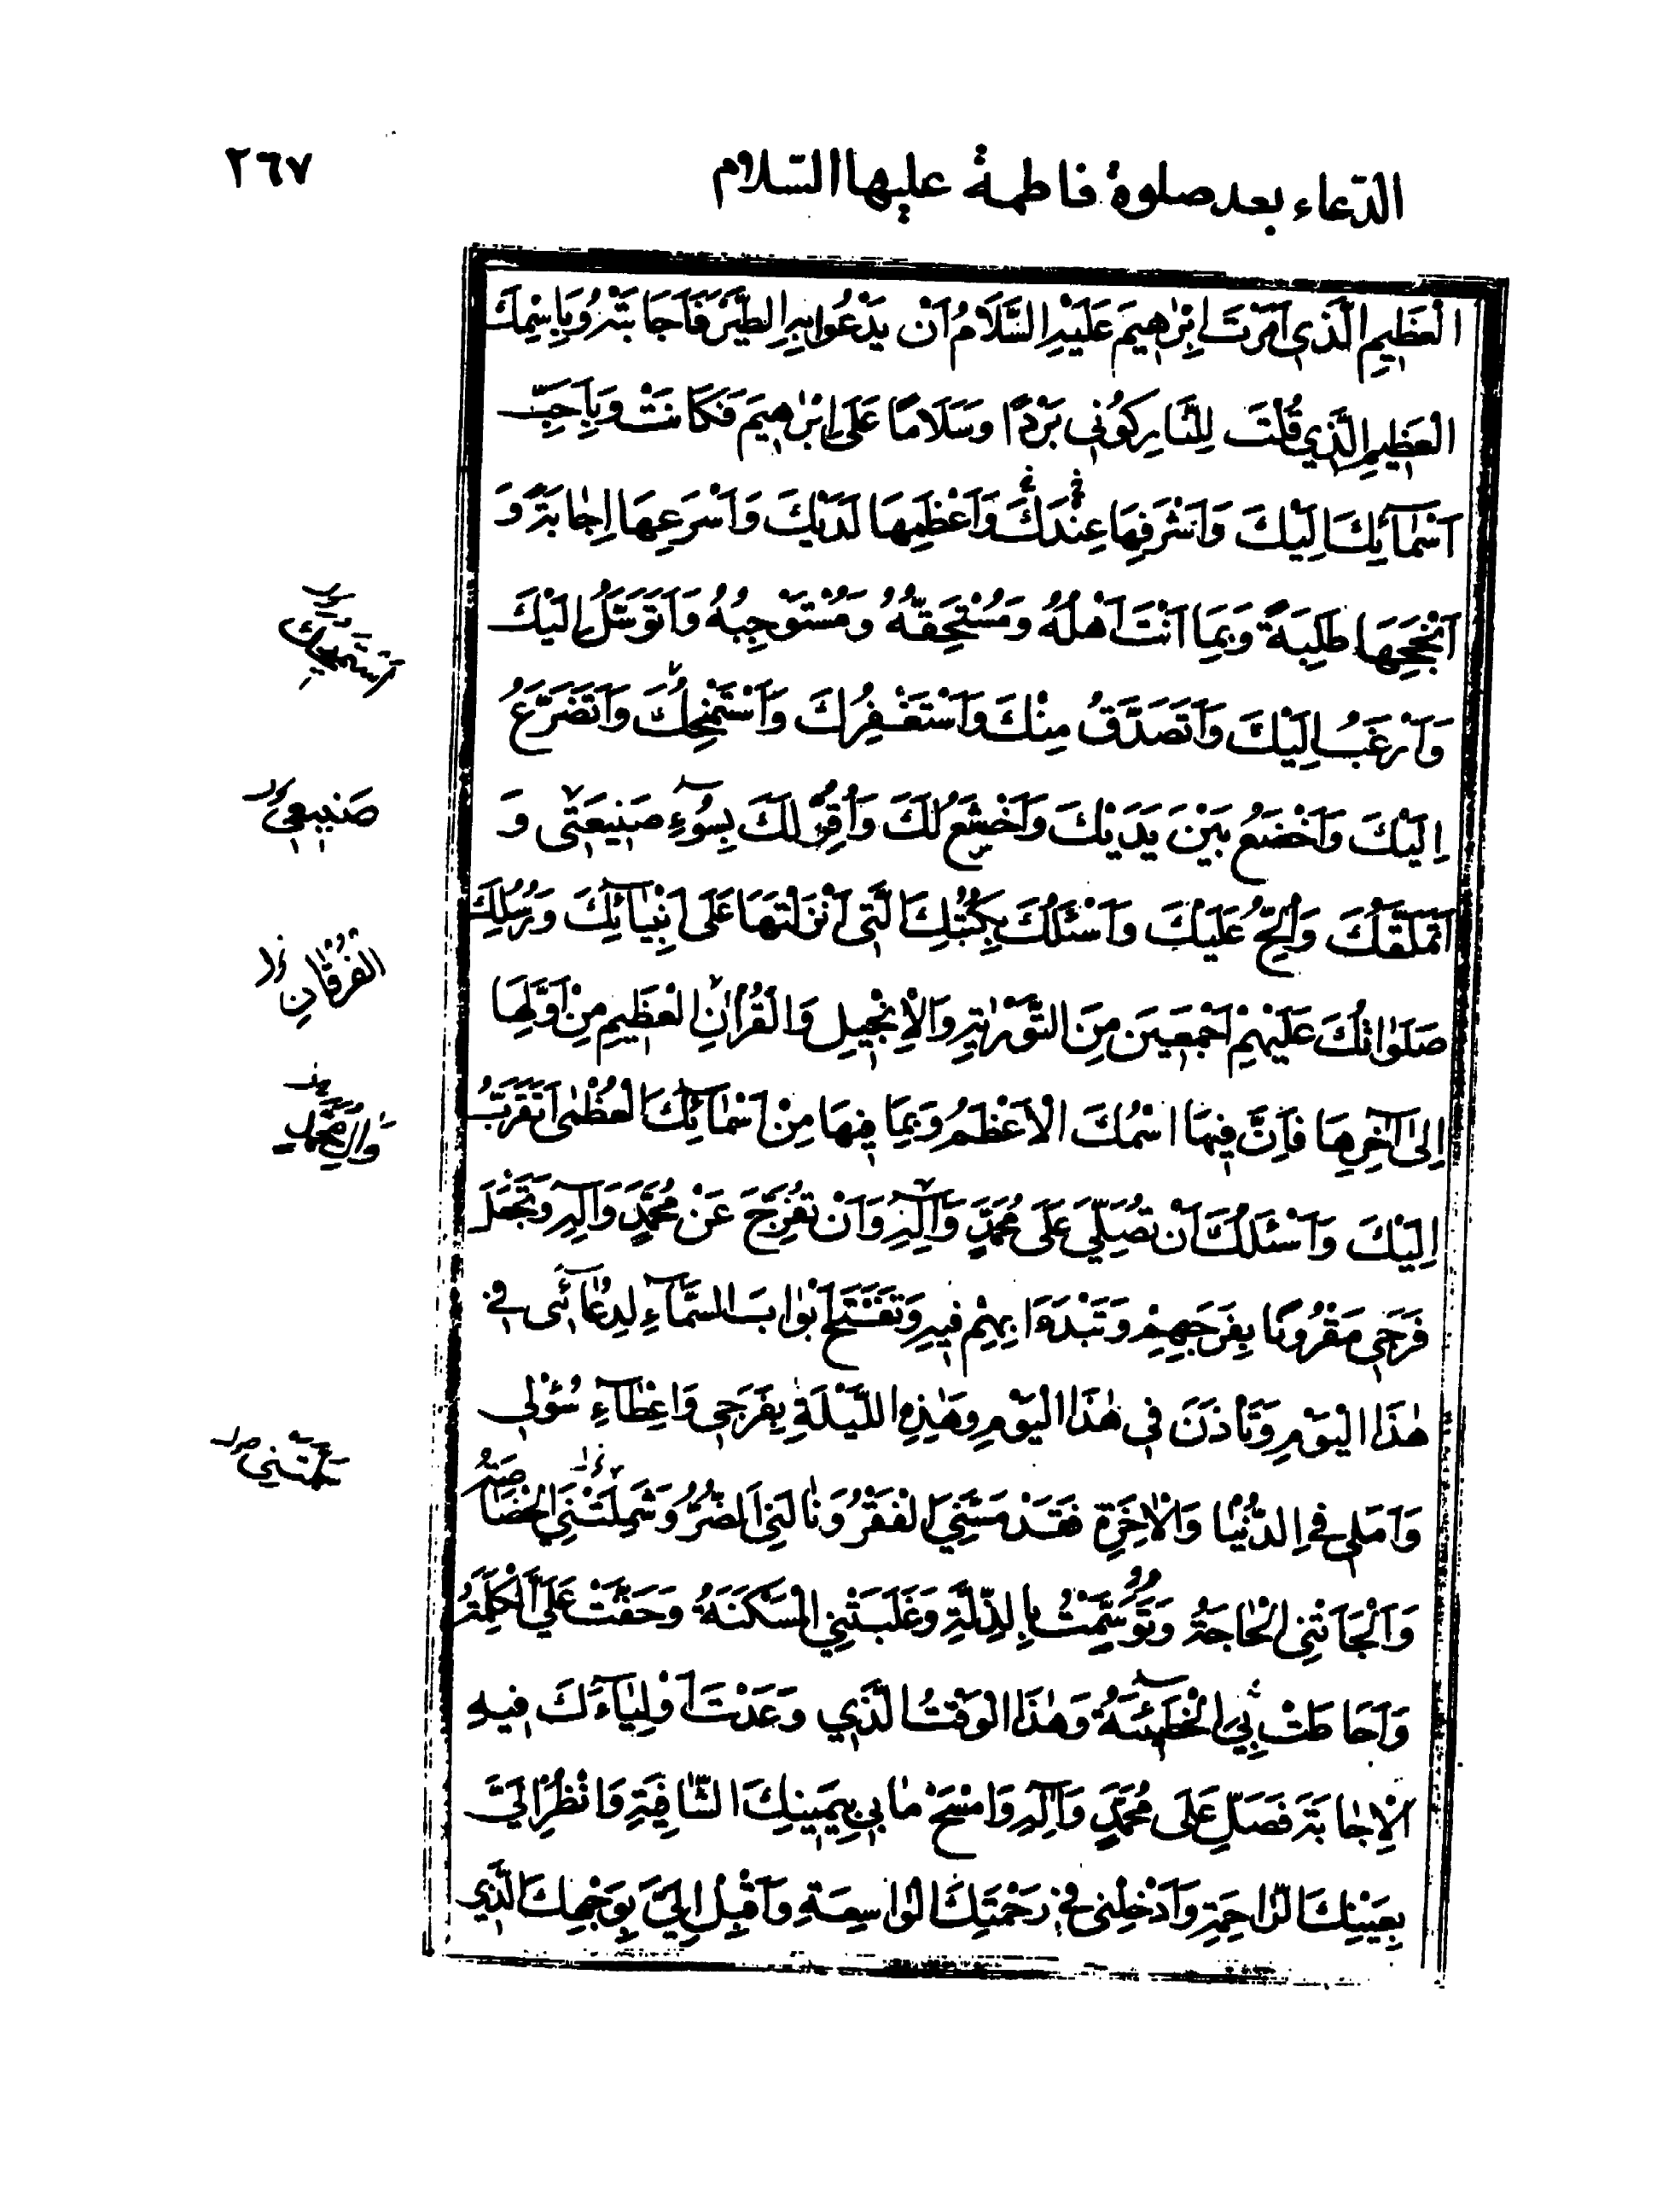 الدّعاء بعد صلوة فاطمة عليها السّلام
٢٦٧
الْعَظِيمِ الَّذِي اَمَرْتَ اِبْرٰهِيمَ عَلَيْهِ السَّلَامُ اَنْ يَدْعُوَ بِهِ الطَّيْرَ فَاَجَابَتْهُ وَبِاسْمِكَ
الْعَظِيمِ الَّذِي قُلْتَ لِلنَّارِ كُونِي بَرْدًا وَسَلَامًا عَلَى اِبْرٰهِيمَ فَكَانَتْ وَبِاَحَبِّ
اَسْمَآئِكَ اِلَيْكَ وَاَشْرَفِهَا عِنْدَكَ وَاَعْظَمِهَا لَدَيْكَ وَاَسْرَعِهَا اِجَابَةً وَ
اَنْجَحِهَا طَلِبَةً وَبِمَا اَنْتَ اَهْلُهُ وَمُسْتَحِقُّهُ وَمُسْتَوْجِبُهُ وَاَتَوَسَّلُ اِلَيْكَ
وَاَرْغَبُ اِلَيْكَ وَاَتَصَدَّقُ مِنْكَ وَاَسْتَغْفِرُكَ وَاَسْتَمْنِحُكَ وَاَتَضَرَّعُ
اِلَيْكَ وَاَخْضَعُ بَيْنَ يَدَيْكَ وَاَخْشَعُ لَكَ وَاُقِرُّ لَكَ بِسُوٓءِ صَنِيعَتِي وَ
اَتَمَلَّقُكَ وَاُلِحُّ عَلَيْكَ وَاَسْئَلُكَ بِكُتُبِكَ الَّتِي اَنْزَلْتَهَا عَلَى اَنْبِيَآئِكَ وَرُسُلِكَ
صَلَوَاتُكَ عَلَيْهِمْ اَجْمَعِينَ مِنَ التَّوْرٰيةِ وَالْاِنْجِيلِ وَالْقُرْاٰنِ الْعَظِيمِ مِنْ اَوَّلِهَا
اِلٰى اٰخِرِهَا فَاِنَّ فِيهَا اسْمَكَ الْاَعْظَمَ وَبِمَا فِيهَا مِنْ اَسْمَآئِكَ الْعُظْمٰى اَتَقَرَّبُ
اِلَيْكَ وَاَسْئَلُكَ اَنْ تُصَلِّيَ عَلَى مُحَمَّدٍ وَاٰلِهِ وَاَنْ تُفَرِّجَ عَنْ مُحَمَّدٍ وَاٰلِهِ وَتَجْعَلَ
فَرَجِي مَقْرُونًا بِفَرَجِهِمْ وَتَبْدَءَ بِهِمْ فِيهِ وَتَفْتَحَ اَبْوَابَ السَّمَآءِ لِدُعَآئِي فِي
هٰذَا الْيَوْمِ وَتَاْذَنَ فِي هٰذَا الْيَوْمِ وَهٰذِهِ اللَّيْلَةِ بِفَرَجِي وَاِعْطَآءِ سُؤْلِي
وَاَمَلِي فِي الدُّنْيَا وَالْاٰخِرَةِ فَقَدْ مَسَّنِيَ الْفَقْرُ وَنَالَنِيَ الضُّرُّ وَشَمِلَتْنِيَ الْخَصَاصَةُ
وَاَلْجَاَتْنِي الْحَاجَةُ وَتَوَسَّمْتُ بِالذِّلَّةِ وَغَلَبَتْنِي الْمَسْكَنَةُ وَحَقَّتْ عَلَيَّ الْكَلِمَةُ
وَاَحَاطَتْ بِيَ الْخَطِيٓئَةُ وَهٰذَا الْوَقْتُ الَّذِي وَعَدْتَ اَوْلِيَآءَكَ فِيهِ
الْاِجَابَةَ فَصَلِّ عَلَى مُحَمَّدٍ وَاٰلِهِ وَامْسَحْ مَا بِي بِيَمِينِكَ الشَّافِيَةِ وَانْظُرْ اِلَيَّ
بِعَيْنِكَ الرَّاحِمَةِ وَاَدْخِلْنِي فِي رَحْمَتِكَ الْوَاسِعَةِ وَاَقْبِلْ اِلَيَّ بِوَجْهِكَ الَّذِي
صَنِيعِي
الْفُرْقَانِ
وَاٰلِ مُحَمَّدٍ